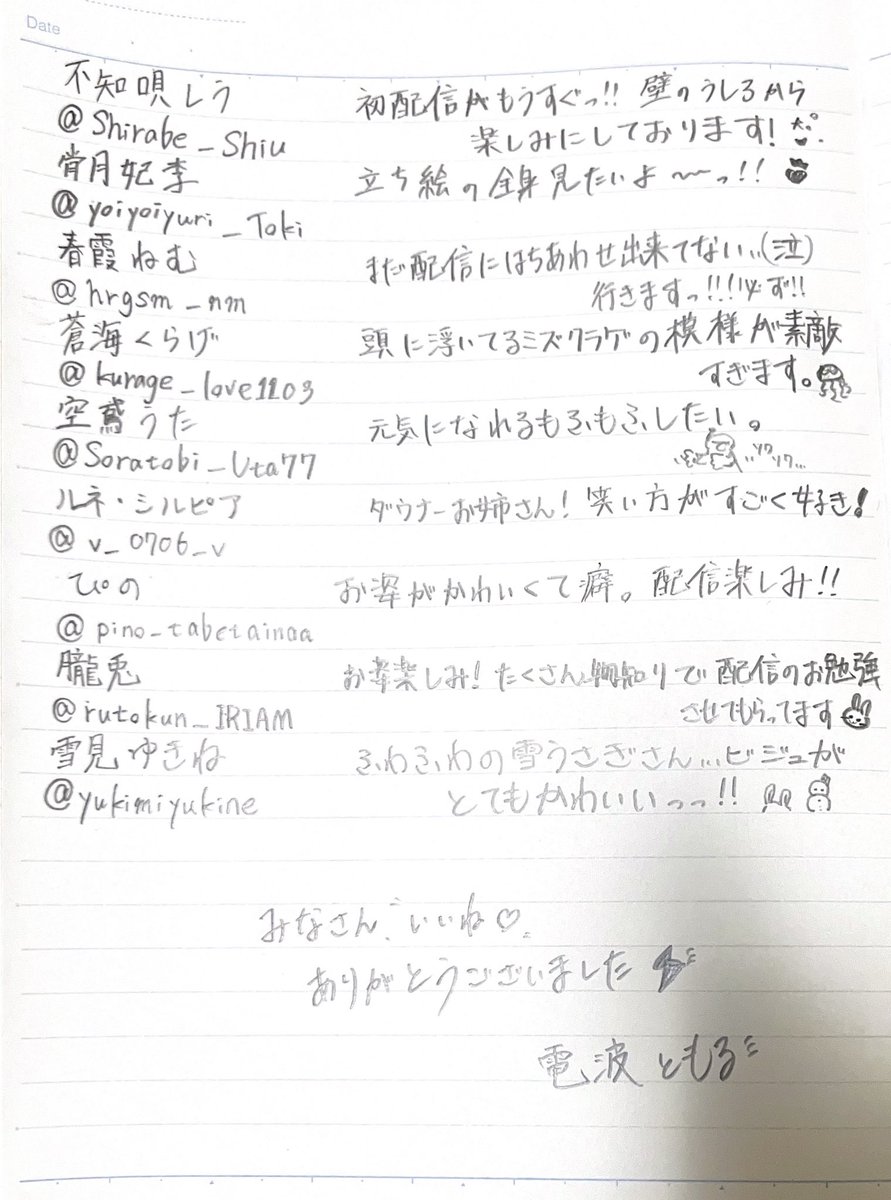 Date
不知唄しう
初配信がもうすぐっ!! 壁のうしろから
@Shirabe_Shiu
楽しみにしております!
宵月妃李
立ち絵の全身見たいよ〜っ!!
@yoiyoiyuri_Toki
春霞ねむ
まだ配信にはちあわせ出来てない...(泣)
@hrgsm_nm
行きますっ!!!必ず!!
蒼海くらげ
頭に浮いてるミズクラゲの模様が素敵
@kurage_love1103
すぎます。
空鳶うた
元気になれるもふもふしたい。
@Soratobi_Uta77
ルネ・シルピア
ダウナーお姉さん! 笑い方がすごく好き!
@v_0706_v
ぴの
お姿がかわいくて癖。配信楽しみ!!
@pino_tabetainaa
朧兎
お葉楽しみ! たくさん物知りで配信のお勉強
@rutokun_IRIAM
させてもらってます
雪見ゆきね
ふわふわの雪うさぎさん...ビジュが
@yukimiyukine
とてもかわいいっっ!!
みなさん、いいね♡
ありがとうございました
電波ともる